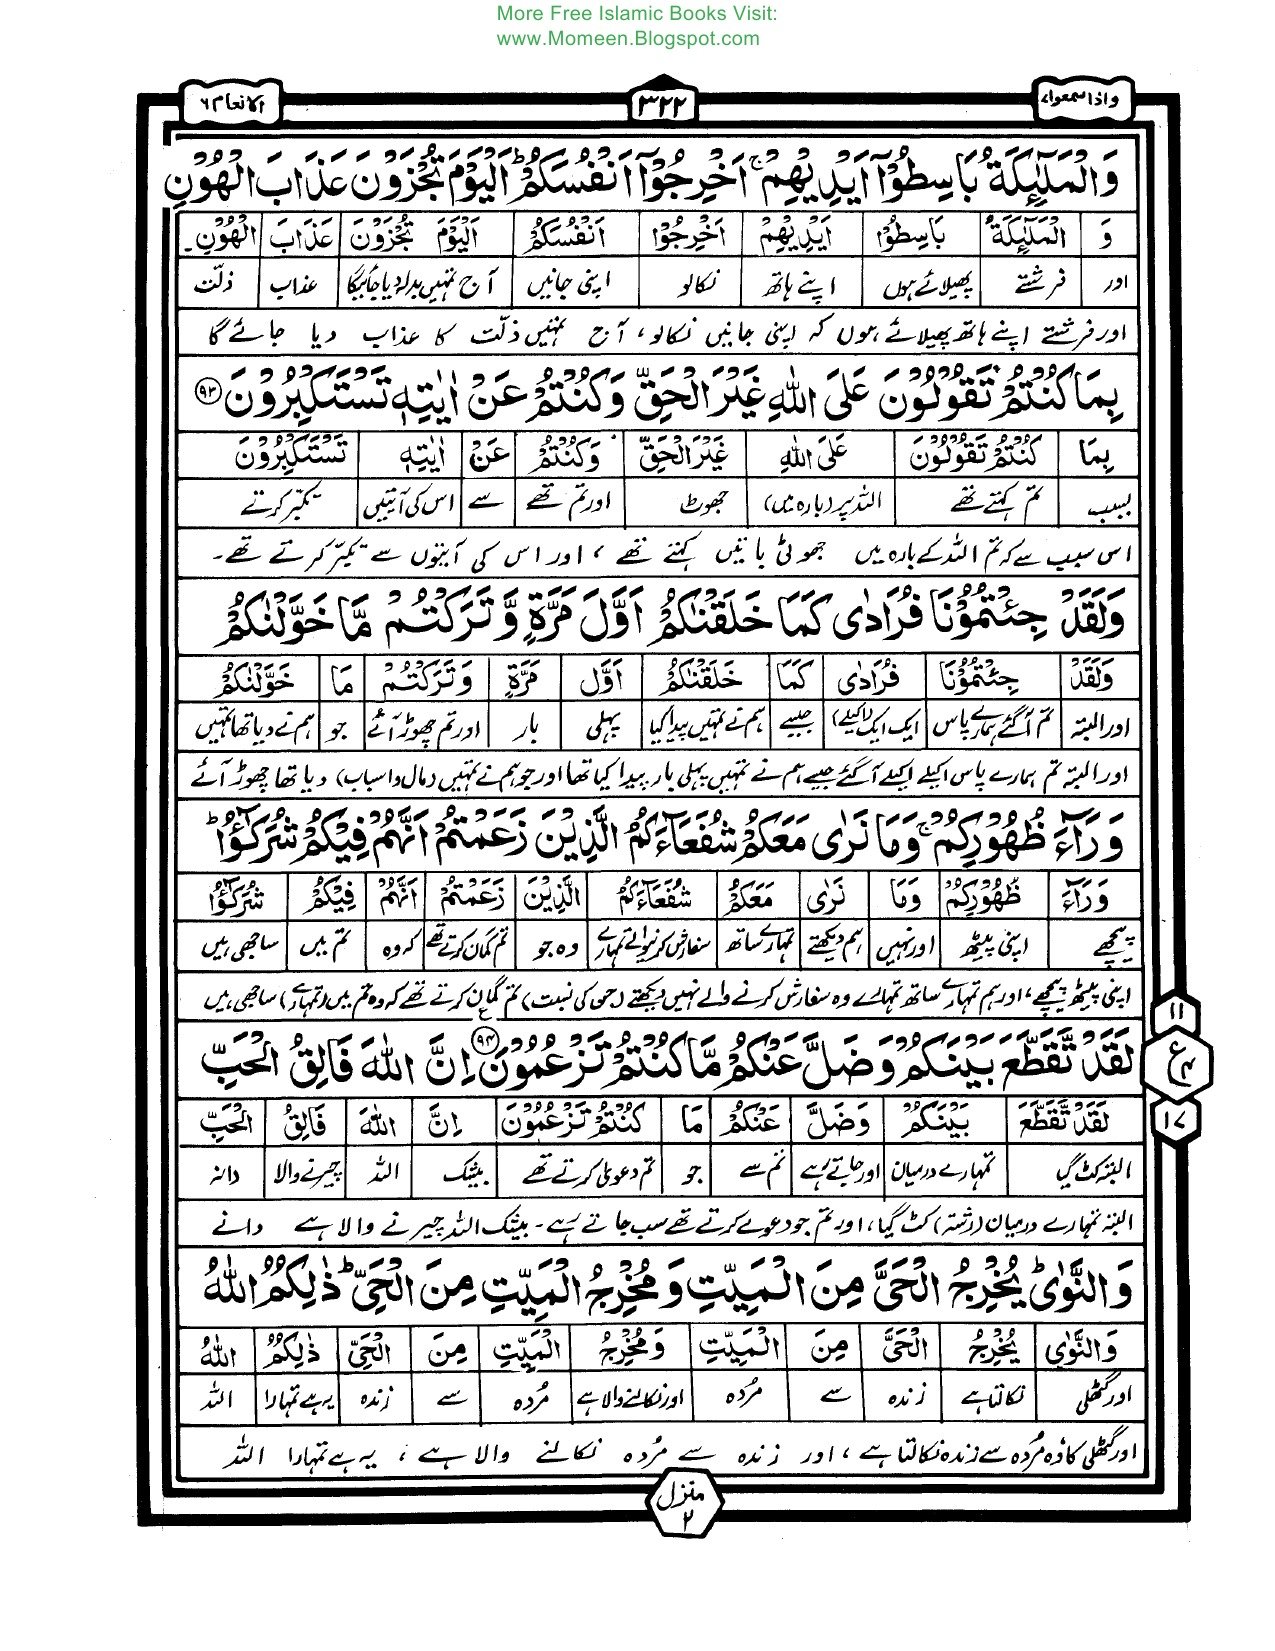 More Free Islamic Books Visit:
www.Momeen.Blogspot.com
واذا سمعوا ۷
۳۲۲
الانعام ۶
وَالْمَلٰٓئِكَةُ بَاسِطُوْٓا اَيْدِيْهِمْ ۚ اَخْرِجُوْٓا اَنْفُسَكُمْ ؕ اَلْيَوْمَ تُجْزَوْنَ عَذَابَ الْهُوْنِ
وَ الْمَلٰٓئِكَةُ بَاسِطُوْٓا اَيْدِيْهِمْ اَخْرِجُوْٓا اَنْفُسَكُمْ اَلْيَوْمَ تُجْزَوْنَ عَذَابَ الْهُوْنِ
اور فرشتے پھیلائے ہوں اپنے ہاتھ نکالو اپنی جانیں آج تمہیں بدلہ دیا جائیگا عذاب ذلّت
اور فرشتے اپنے ہاتھ پھیلائے ہوں کہ اپنی جانیں نکالو، آج تمہیں ذلّت کا عذاب دیا جائے گا
بِمَا كُنْتُمْ تَقُوْلُوْنَ عَلَى اللّٰهِ غَيْرَ الْحَقِّ وَكُنْتُمْ عَنْ اٰيٰتِهٖ تَسْتَكْبِرُوْنَ ۹۳
بِمَا كُنْتُمْ تَقُوْلُوْنَ عَلَى اللّٰهِ غَيْرَ الْحَقِّ وَكُنْتُمْ عَنْ اٰيٰتِهٖ تَسْتَكْبِرُوْنَ
بسبب تم کہتے تھے اللہ پر (بارہ میں) جھوٹ اور تم تھے سے اس کی آیتیں تکبّر کرتے
اس سبب سے کہ تم اللہ کے بارہ میں جھوٹی باتیں کہتے تھے، اور اس کی آیتوں سے تکبّر کرتے تھے۔
وَلَقَدْ جِئْتُمُوْنَا فُرَادٰى كَمَا خَلَقْنٰكُمْ اَوَّلَ مَرَّةٍ وَّتَرَكْتُمْ مَّا خَوَّلْنٰكُمْ
وَلَقَدْ جِئْتُمُوْنَا فُرَادٰى كَمَا خَلَقْنٰكُمْ اَوَّلَ مَرَّةٍ وَتَرَكْتُمْ مَا خَوَّلْنٰكُمْ
اور البتہ تم آگئے ہمارے پاس ایک ایک (اکیلے) جیسے ہم نے تمہیں پیدا کیا پہلی بار اور تم چھوڑ آئے جو ہم نے دیا تھا تمہیں
اور البتہ تم ہمارے پاس اکیلے اکیلے آگئے جیسے ہم نے تمہیں پہلی بار پیدا کیا تھا اور جو ہم نے تمہیں (مال و اسباب) دیا تھا چھوڑ آئے
وَرَآءَ ظُهُوْرِكُمْ ۚ وَمَا نَرٰى مَعَكُمْ شُفَعَآءَكُمُ الَّذِيْنَ زَعَمْتُمْ اَنَّهُمْ فِيْكُمْ شُرَكٰٓؤُا ؕ
وَرَآءَ ظُهُوْرِكُمْ وَمَا نَرٰى مَعَكُمْ شُفَعَآءَكُمُ الَّذِيْنَ زَعَمْتُمْ اَنَّهُمْ فِيْكُمْ شُرَكٰٓؤُا
پیچھے اپنی پیٹھ اور نہیں ہم دیکھتے تمہارے ساتھ سفارش کرنیوالے تمہارے وہ جو تم گمان کرتے تھے کہ وہ تم میں ساجھی ہیں
اپنی پیٹھ پیچھے، اور ہم تمہارے ساتھ تمہارے وہ سفارش کرنے والے نہیں دیکھتے (جن کی نسبت) تم گمان کرتے تھے کہ وہ تم میں (تمہارے) ساجھی ہیں
لَقَدْ تَّقَطَّعَ بَيْنَكُمْ وَضَلَّ عَنْكُمْ مَّا كُنْتُمْ تَزْعُمُوْنَ ۹۴ ع اِنَّ اللّٰهَ فَالِقُ الْحَبِّ
لَقَدْ تَّقَطَّعَ بَيْنَكُمْ وَضَلَّ عَنْكُمْ مَا كُنْتُمْ تَزْعُمُوْنَ اِنَّ اللّٰهَ فَالِقُ الْحَبِّ
البتہ کٹ گیا تمہارے درمیان اور جاتے رہے تم سے جو تم دعویٰ کرتے تھے بیشک اللہ چیرنے والا دانہ
البتہ تمہارے درمیان (رشتہ) کٹ گیا، اور تم جو دعوے کرتے تھے سب جاتے رہے۔ بیشک اللہ چیرنے والا ہے دانے
وَالنَّوٰى ؕ يُخْرِجُ الْحَيَّ مِنَ الْمَيِّتِ وَمُخْرِجُ الْمَيِّتِ مِنَ الْحَيِّ ؕ ذٰلِكُمُ اللّٰهُ
وَالنَّوٰى يُخْرِجُ الْحَيَّ مِنَ الْمَيِّتِ وَمُخْرِجُ الْمَيِّتِ مِنَ الْحَيِّ ذٰلِكُمُ اللّٰهُ
اور گٹھلی نکالتا ہے زندہ سے مُردہ اور نکالنے والا ہے مُردہ سے زندہ یہ ہے تمہارا اللہ
اور گٹھلی کا وہ مُردہ سے زندہ نکالتا ہے، اور زندہ سے مُردہ نکالنے والا ہے، یہ ہے تمہارا اللہ
۱۱
ع ۴
۱۷
منزل ۲